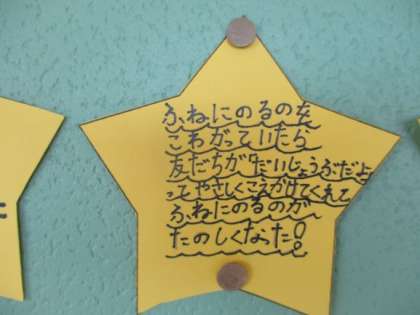 ふねにのるのを
こわがっていたら
友だちがだいじょうぶだよ
ってやさしくこえがけてくれて
ふねにのるのが
たのしくなった!